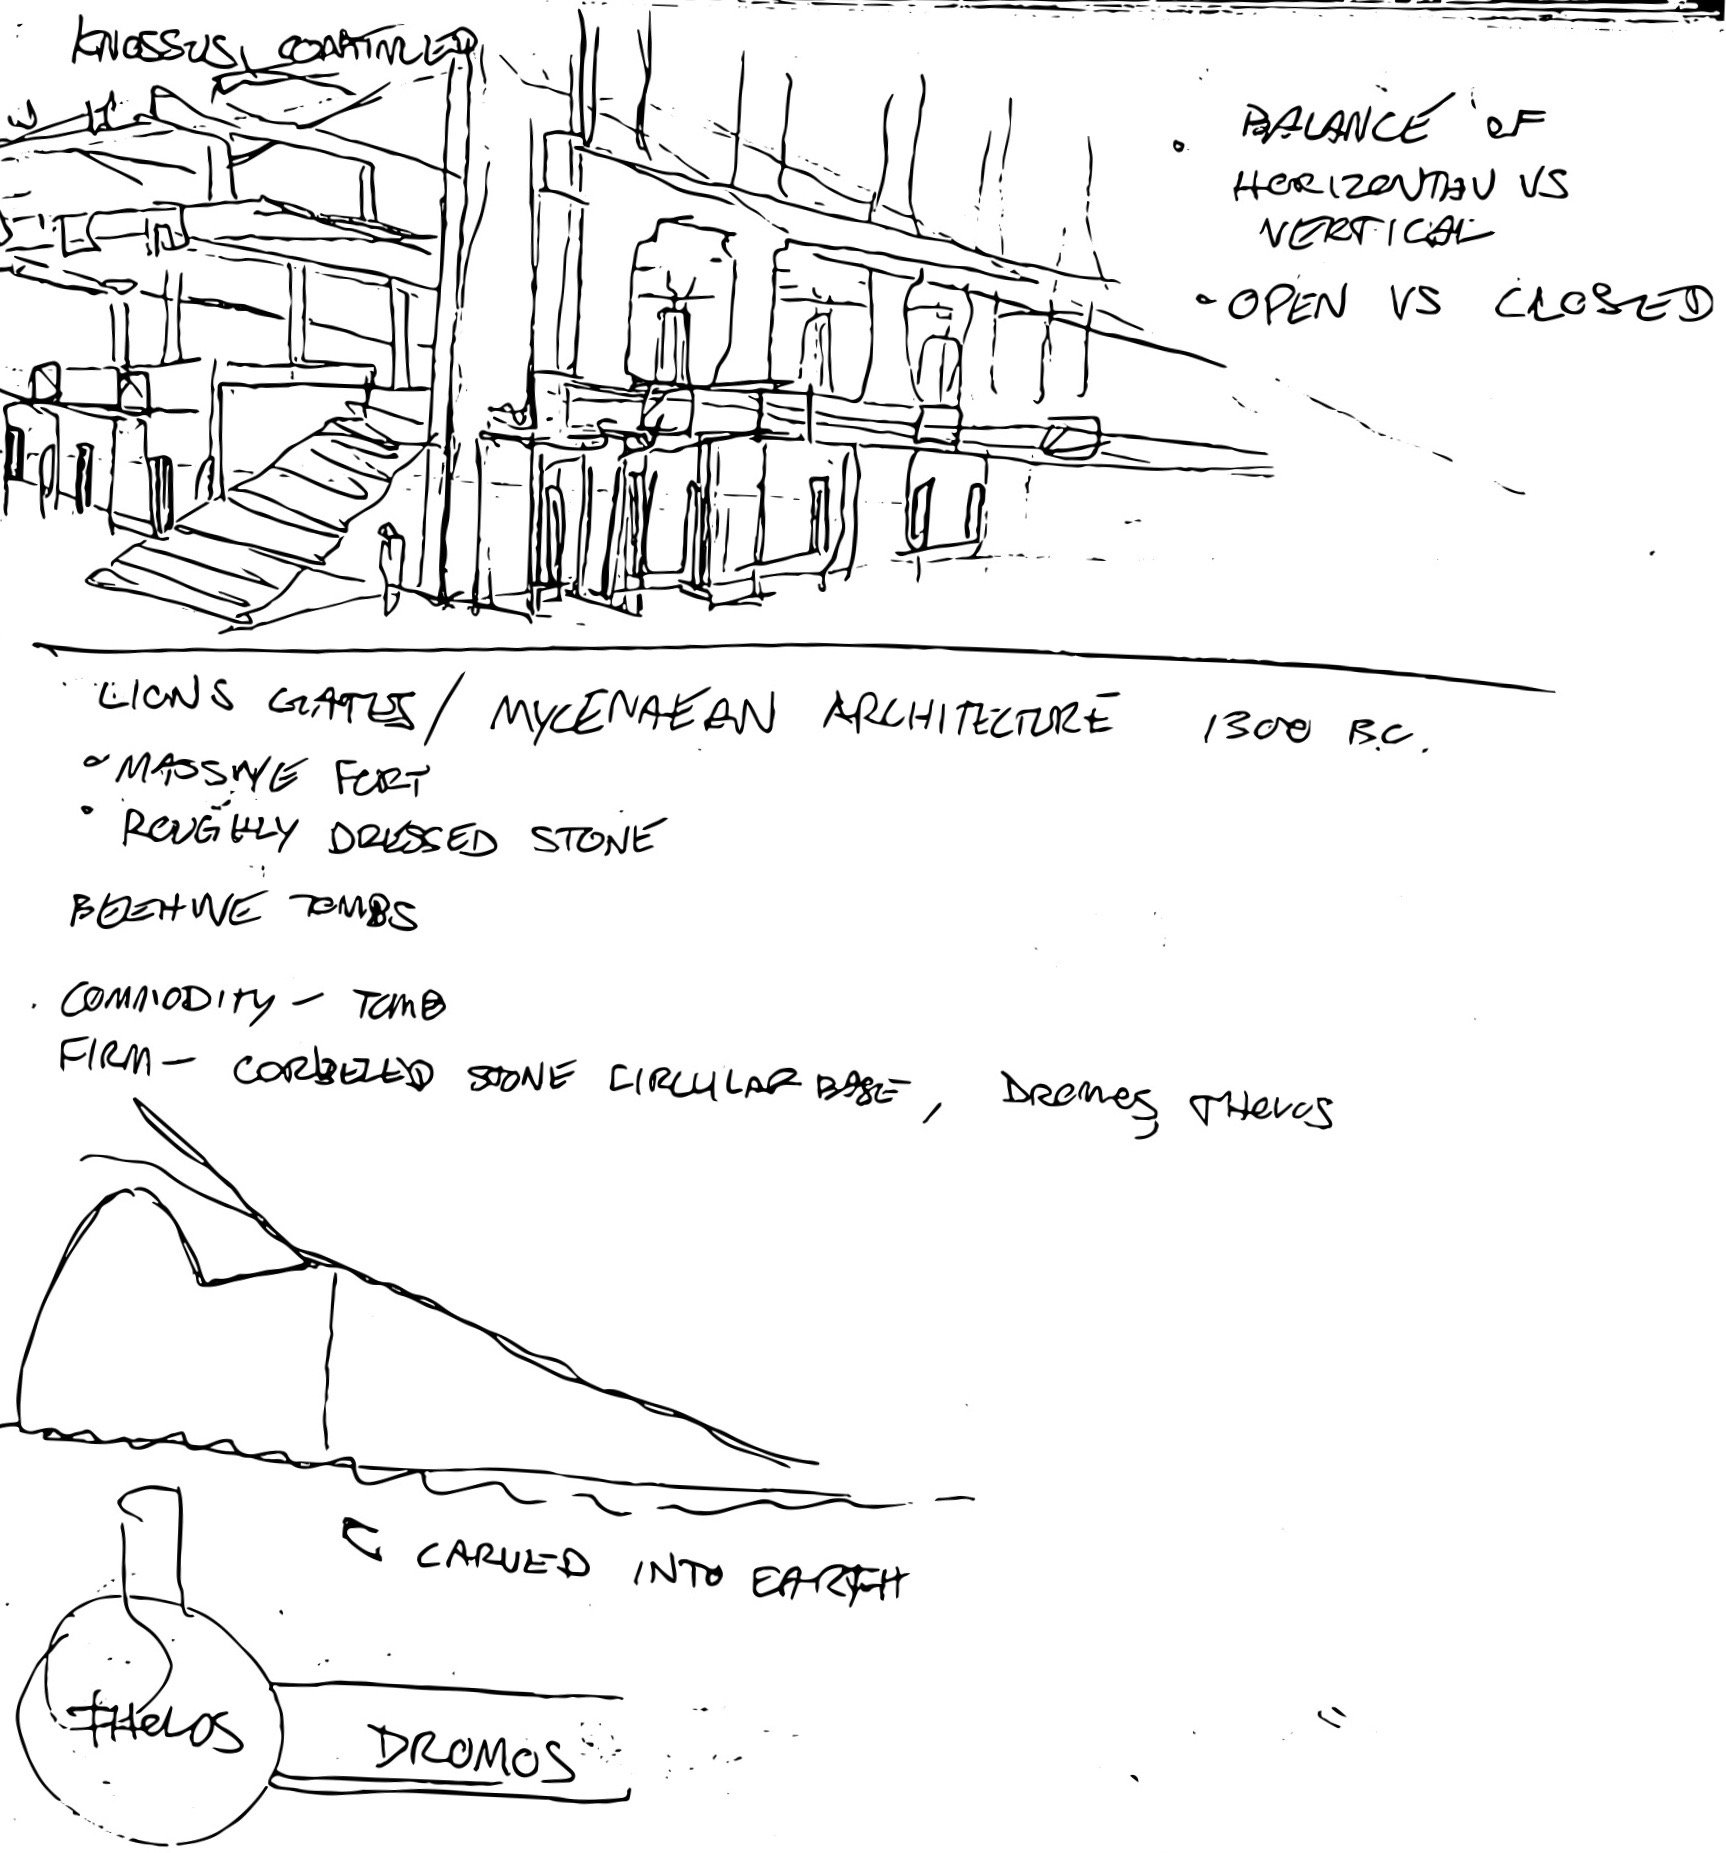 KNOSSUS, CONTINUED
• BALANCE OF
HORIZONTAL VS
VERTICAL
• OPEN VS CLOSED
LIONS GATES / MYCENAEAN ARCHITECTURE 1300 B.C.
• MASSIVE FORT
• ROUGHLY DRESSED STONE
BEEHIVE TOMBS
COMMODITY – TOMB
FIRM – CORBELED STONE CIRCULAR BASE, DROMOS, THOLOS
CARVED INTO EARTH
THOLOS
DROMOS